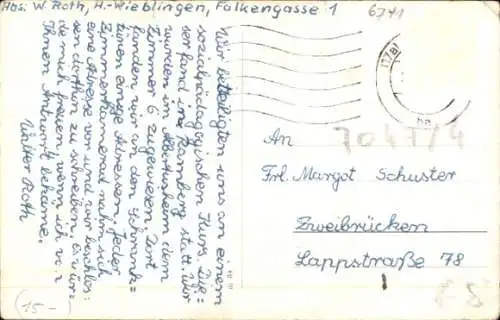 Abs. W. Roth, H.-Wieblingen, Falkengasse 1
6741
(17a)
Wir beteiligten uns an einem
sozialpädagogischen Kurs. Die=
ser fand in Bamberg statt. Wir
wurden im Albertusheim dem
Zimmer 6 zugewiesen. Dort
fanden wir an den Schrank=
türen einige Adressen. Jeder
Zimmerkamerad nahm sich
eine Adresse vor und wir beschlos=
sen dorthin zu schreiben. Es wür=
de mich freuen, wenn ich v.
Ihnen Antwort bekäme.
Walter Roth
An
7047/4
Frl. Margot Schuster
Zweibrücken
Lappstraße 78
(15-)